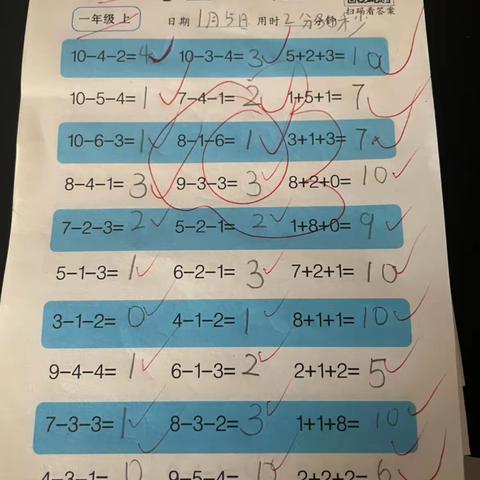 一年级 上 日期 1月5日 用时 2分 秒 扫码看答案
10-4-2=4 10-3-4=3 5+2+3=10
10-5-4=1 7-4-1=2 1+5+1=7
10-6-3=1 8-1-6=1 3+1+3=7
8-4-1=3 9-3-3=3 8+2+0=10
7-2-3=2 5-2-1=2 1+8+0=9
5-1-3=1 6-2-1=3 7+2+1=10
3-1-2=0 4-1-2=1 8+1+1=10
9-4-4=1 6-1-3=2 2+1+2=5
7-3-3=1 8-3-2=3 1+1+8=10
4-3-1=0 9-5-4=0 2+2+2=6